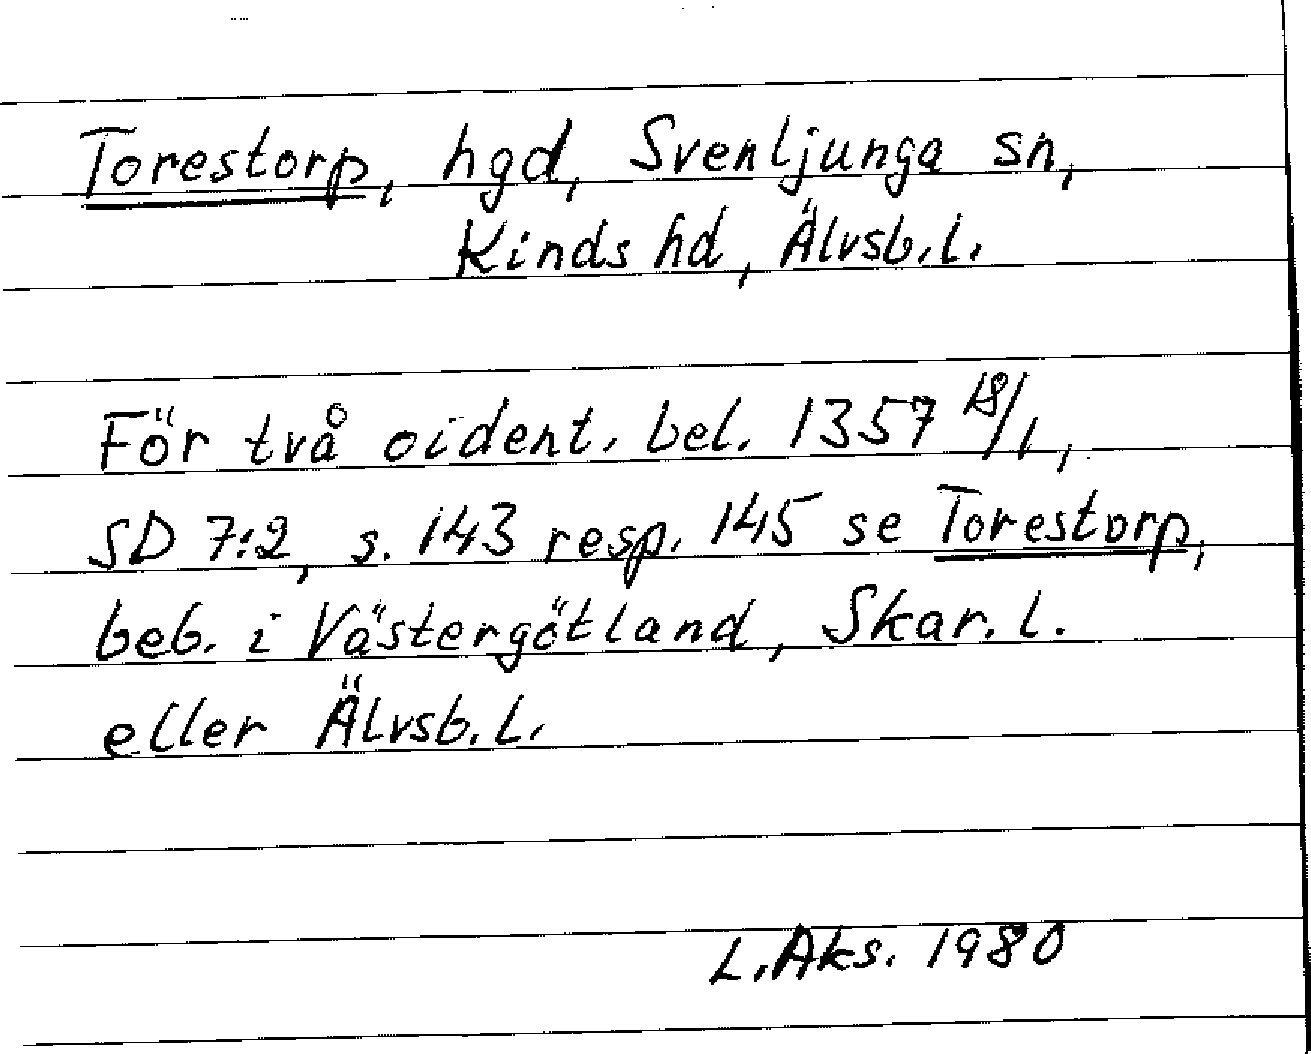 Torestorp, hgd, Svenljunga sn,
Kinds hd, Älvsb.l.
För två oident. bel. 1357 18/1,
SD 7:2, s. 143 resp. 145 se Torestorp,
beb. i Västergötland, Skar. l.
eller Älvsb. l.
L. Aks. 1980